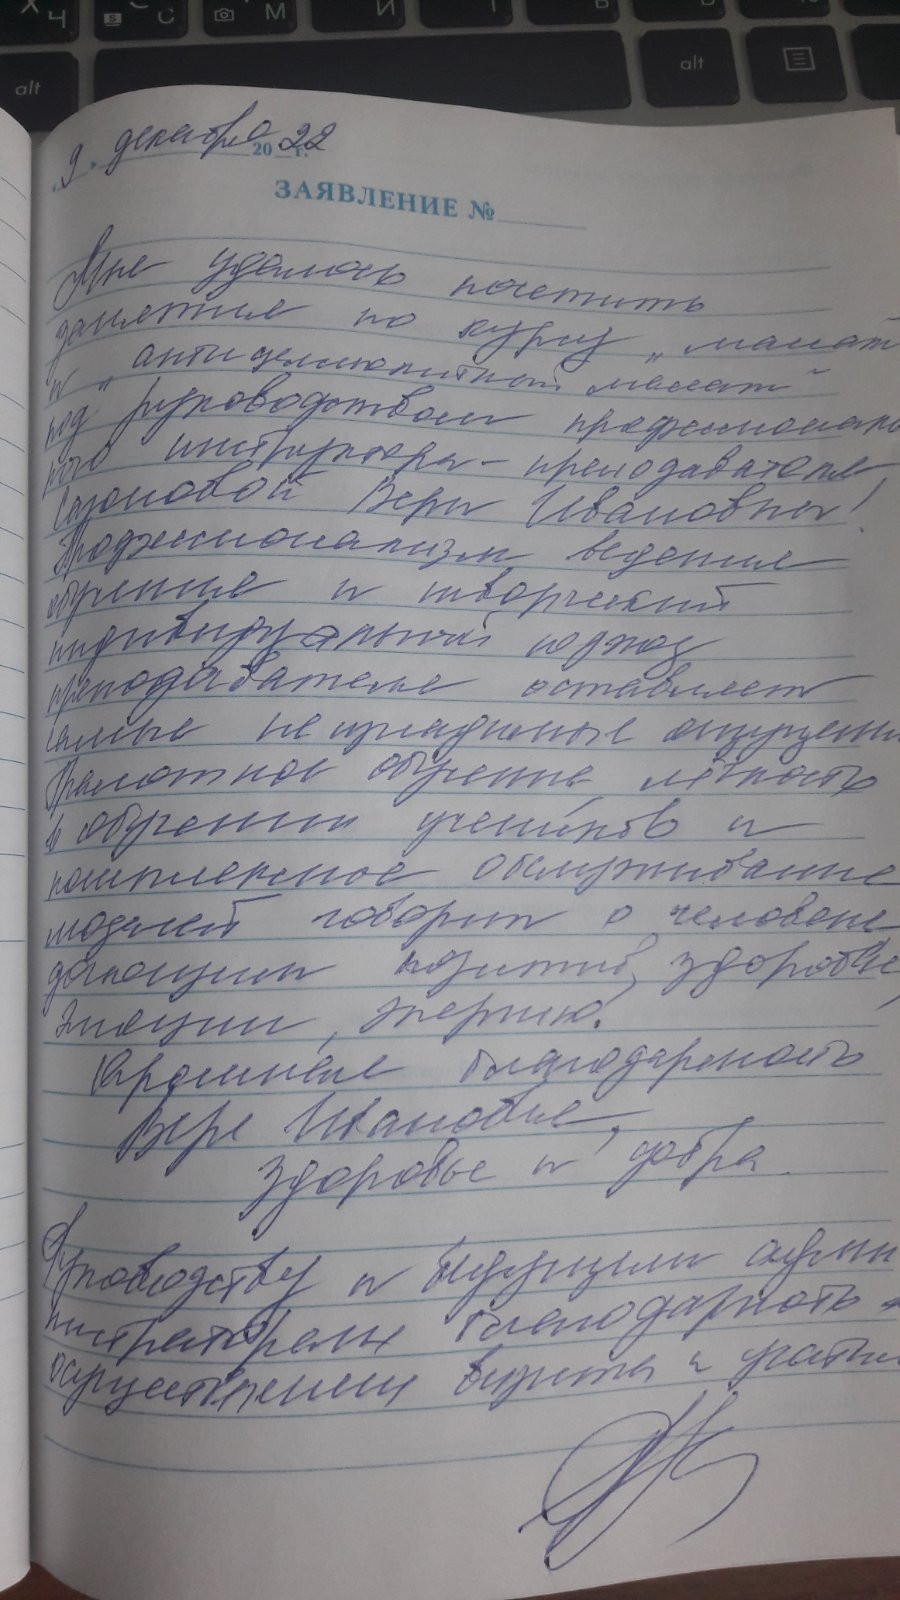 Х Ч
S С
М
И
Т
Ь
Б
Ю
alt
alt
9 декабря 2022 г.
ЗАЯВЛЕНИЕ №
Мне удалось посетить
занятие по курсу „массаж
и „антицеллюлитный массаж"
под руководством профессиональ
ного инструктора-преподавателя
Сазоновой Веры Ивановны!
Профессионализм ведения
обучение и творческий
индивидуальный подход
преподавателя оставляет
самые неизгладимые ощущени
Грамотное обучение, лёгкость
в обучении учеников и
комплексное обслуживание
моделей говорит о человеке
дающим позитив, здоровье,
эмоции, энергию.
Огромная благодарность
Вере Ивановне,
здоровье и добра.
Руководству и ведущему адми
нистратору благодарность
осуществлении визита и участи